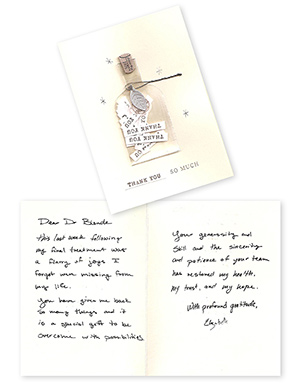 THANK YOU
THANK YOU
THANK YOU
THANK YOU SO MUCH
Dear Dr
This last week following
my final treatment was
a flurry of joys I
forgot were missing from
my life.
You have given me back
so many things and it
is a special gift to be
overcome with possibilities
Your generosity and
skill and the sincerity
and patience of your team
has restored my health,
my trust, and my hope.
With profound gratitude,